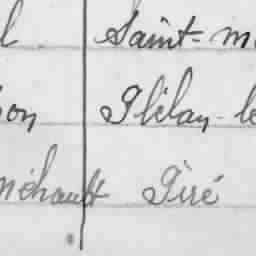 l Saint-m
on Plélan-le
néhault Piré